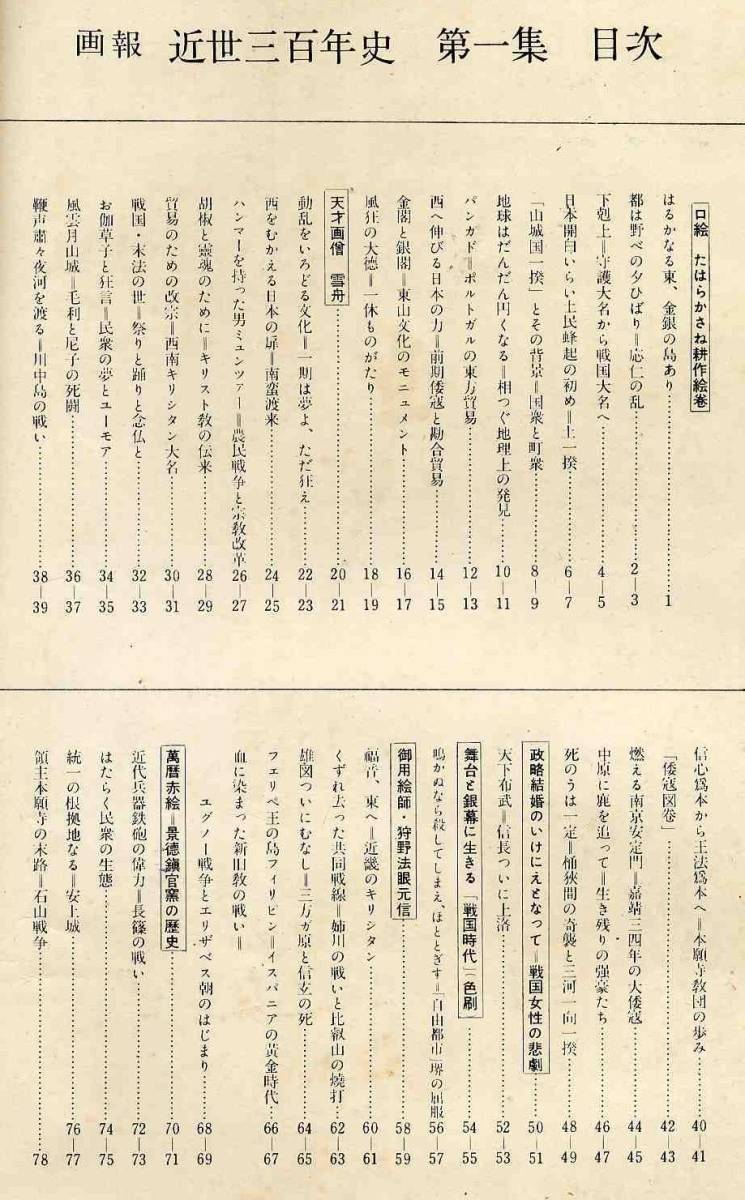 画報 近世三百年史 第一集 目次
口絵 たはらかさね耕作絵巻
はるかなる東、金銀の島あり……1
都は野べの夕ひばり＝応仁の乱……2—3
下剋上＝守護大名から戦国大名へ……4—5
日本開白いらい土民蜂起の初め＝土一揆……6—7
「山城国一揆」とその背景＝国衆と町衆……8—9
地球はだんだん円くなる＝相つぐ地理上の発見……10—11
パンカド＝ポルトガルの東方貿易……12—13
西へ伸びる日本の力＝前期倭寇と勘合貿易……14—15
金閣と銀閣＝東山文化のモニュメント……16—17
風狂の大徳＝一休ものがたり……18—19
天才画僧 雪舟……20—21
動乱をいろどる文化＝一期は夢よ、ただ狂え……22—23
西をむかえる日本の扉＝南蛮渡来……24—25
ハンマーを持った男ミュンツァー＝農民戦争と宗教改革……26—27
胡椒と霊魂のために＝キリスト教の伝来……28—29
貿易のための改宗＝西南キリシタン大名……30—31
戦国・末法の世＝祭りと踊りと念仏と……32—33
お伽草子と狂言＝民衆の夢とユーモア……34—35
風雲月山城＝毛利と尼子の死闘……36—37
鞭声粛々夜河を渡る＝川中島の戦い……38—39
信心為本から王法為本へ＝本願寺教団の歩み……40—41
「倭寇図巻」……42—43
燃える南京安定門＝嘉靖三四年の大倭寇……44—45
中原に鹿を追って＝生き残りの強豪たち……46—47
死のうは一定＝桶狭間の奇襲と三河一向一揆……48—49
政略結婚のいけにえとなって＝戦国女性の悲劇……50—51
天下布武＝信長ついに上洛……52—53
舞台と銀幕に生きる「戦国時代」二色刷……54—55
鳴かぬなら殺してしまえ、ほととぎす＝「自由都市」堺の屈服……56—57
御用絵師・狩野法眼元信……58—59
福音、東へ＝近畿のキリシタン……60—61
くずれ去った共同戦線＝姉川の戦いと比叡山の焼打……62—63
雄図ついにむなし＝三方ガ原と信玄の死……64—65
フェリペ王の島フィリピン＝イスパニアの黄金時代……66—67
血に染まった新旧教の戦い＝
ユグノー戦争とエリザベス朝のはじまり……68—69
萬暦赤絵＝景徳鎮官窯の歴史……70—71
近代兵器鉄砲の偉力＝長篠の戦い……72—73
はたらく民衆の生態……74—75
統一の根拠地なる＝安土城……76—77
領主本願寺の末路＝石山戦争……78